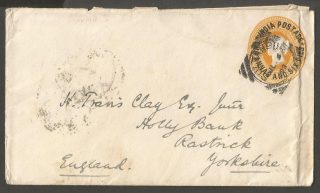 INDIA POSTAGE
TWO ANNAS & SIX PIES
H. Travis Clay Esq. Junr
Holly Bank
Rastrick
Yorkshire.
England.